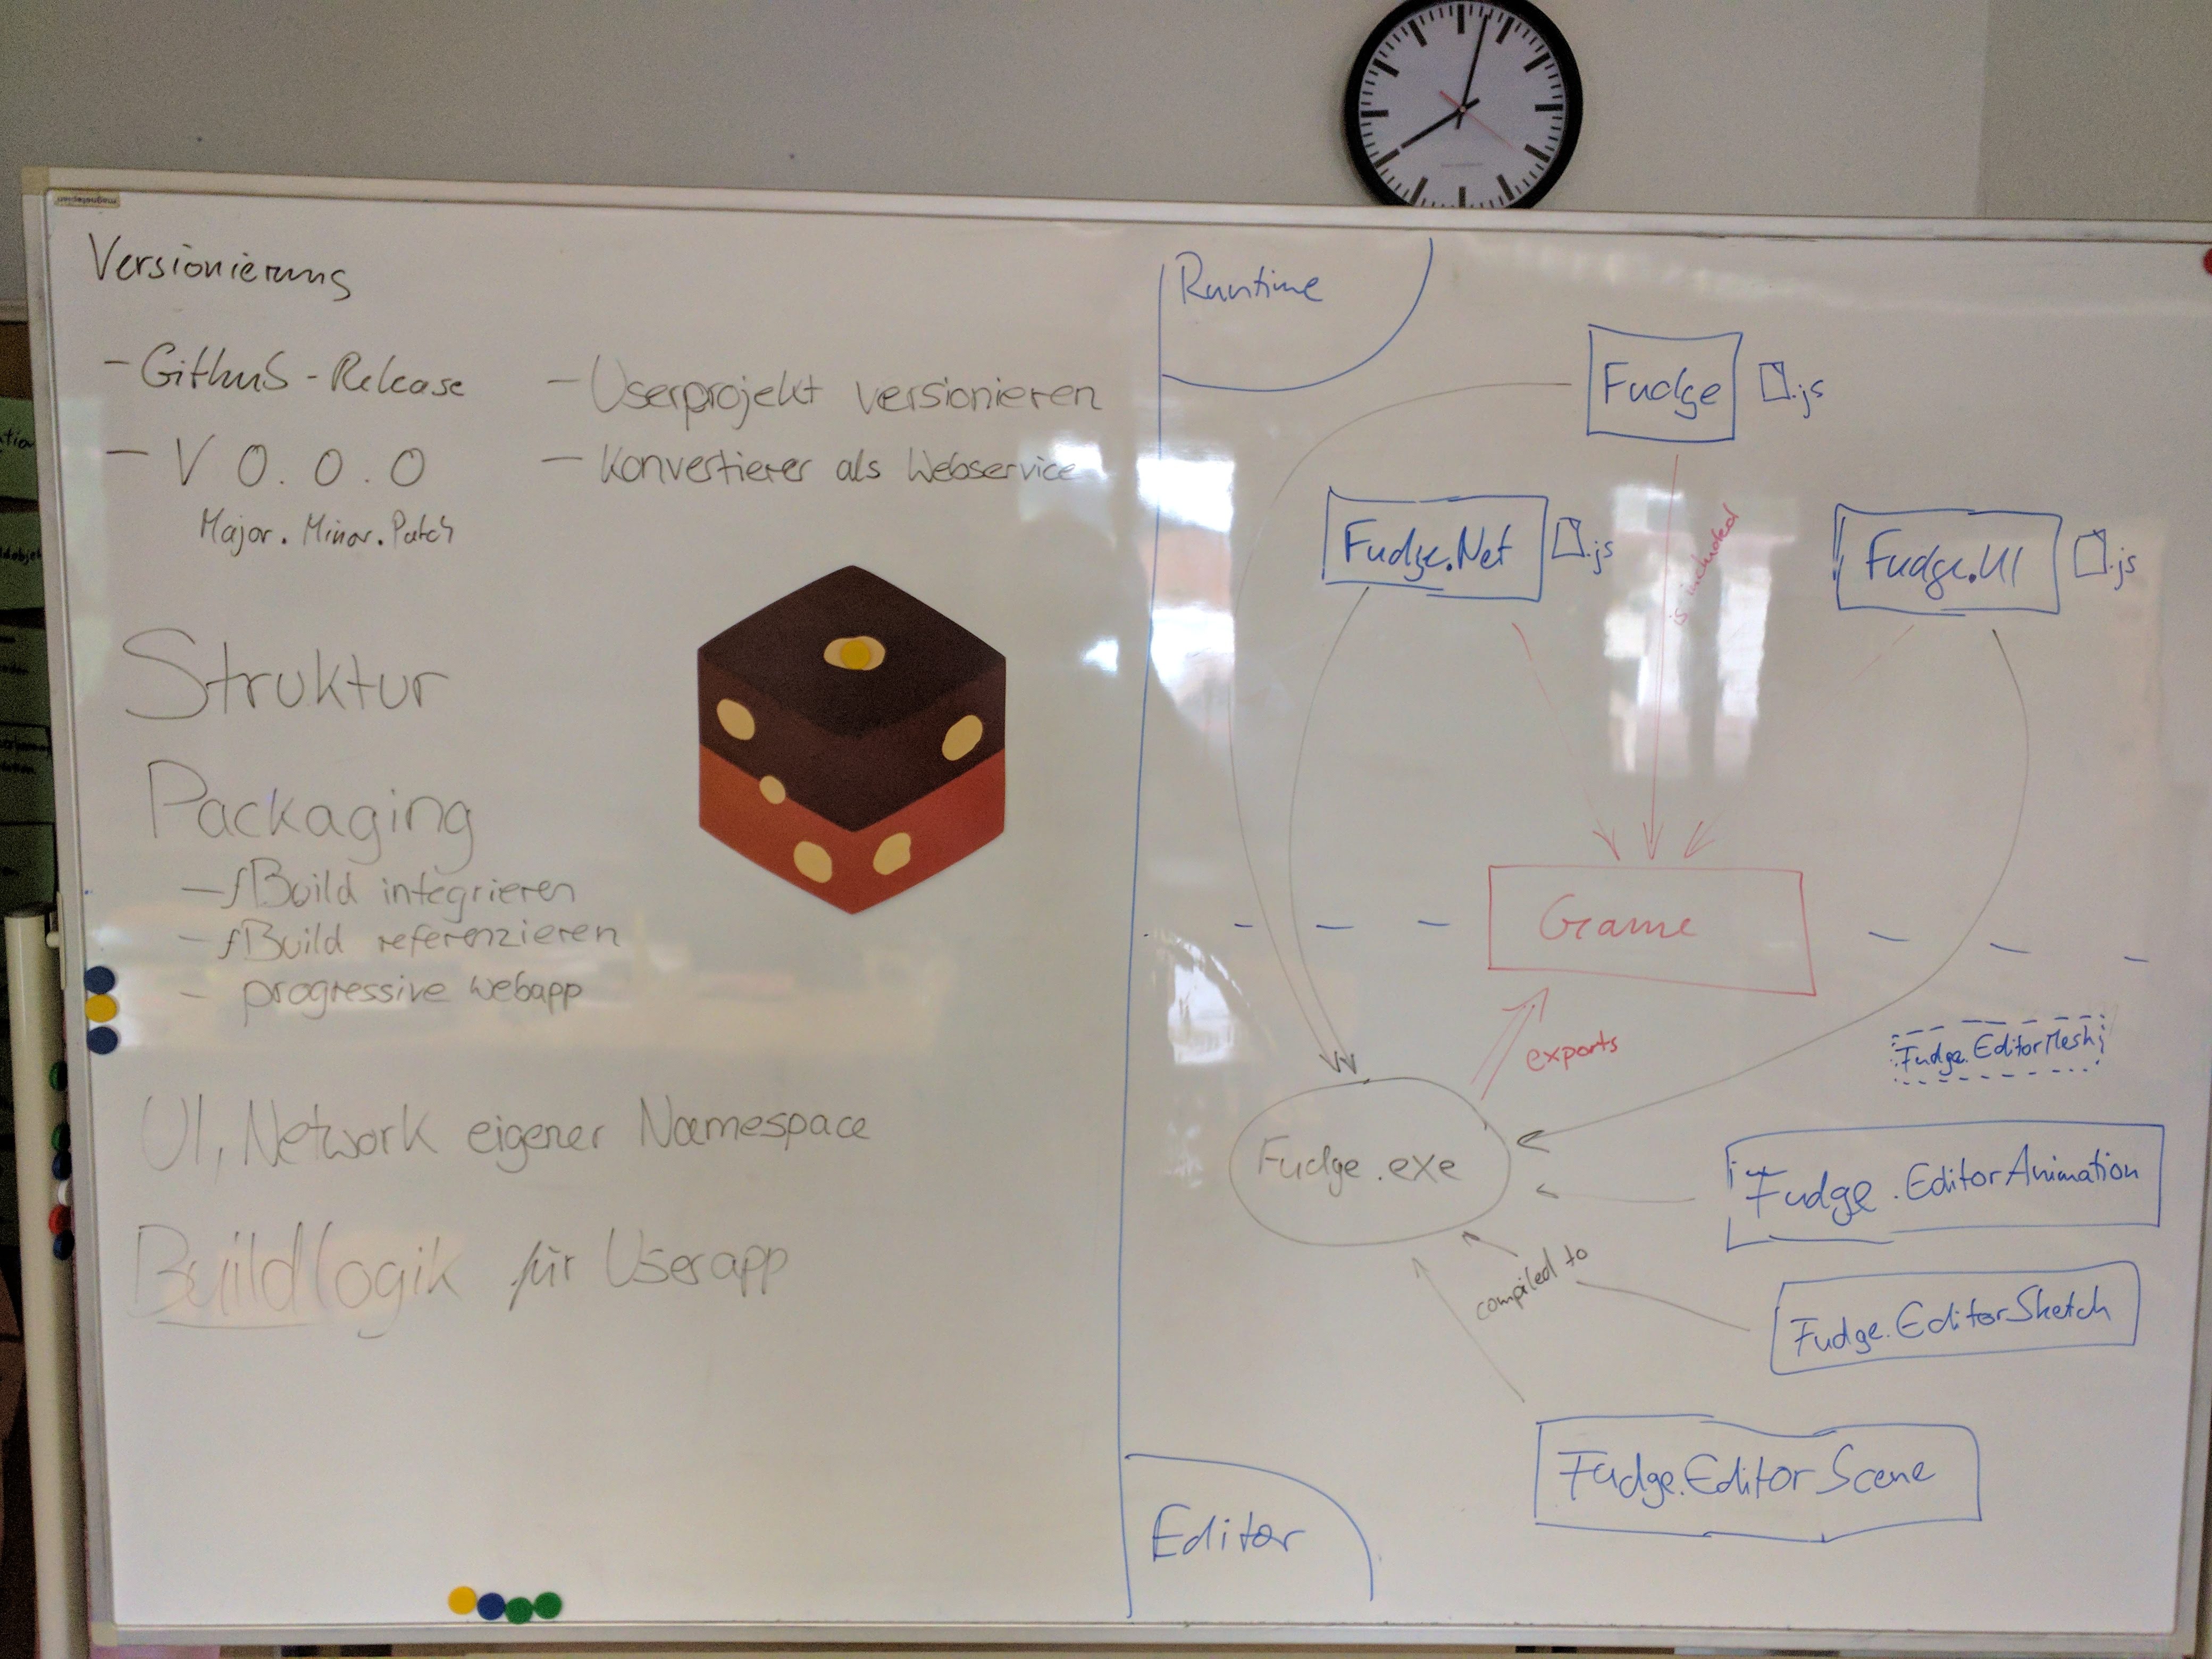 magnetoplan
Versionierung
- Github-Release
- V 0.0.0
Major.Minor.Patch
- Userprojekt versionieren
- Konvertierer als Webservice
Struktur
Packaging
- fBuild integrieren
- fBuild referenzieren
- progressive Webapp
UI, Network eigener Namespace
Buildlogik für Userapp
Runtime
Fudge .js
Fudge.Net .js
Fudge.UI .js
is included
Game
exports
Fudge.EditorMesh
Fudge.exe
Fudge.EditorAnimation
compiled to
Fudge.EditorSketch
Fudge.EditorScene
Editor